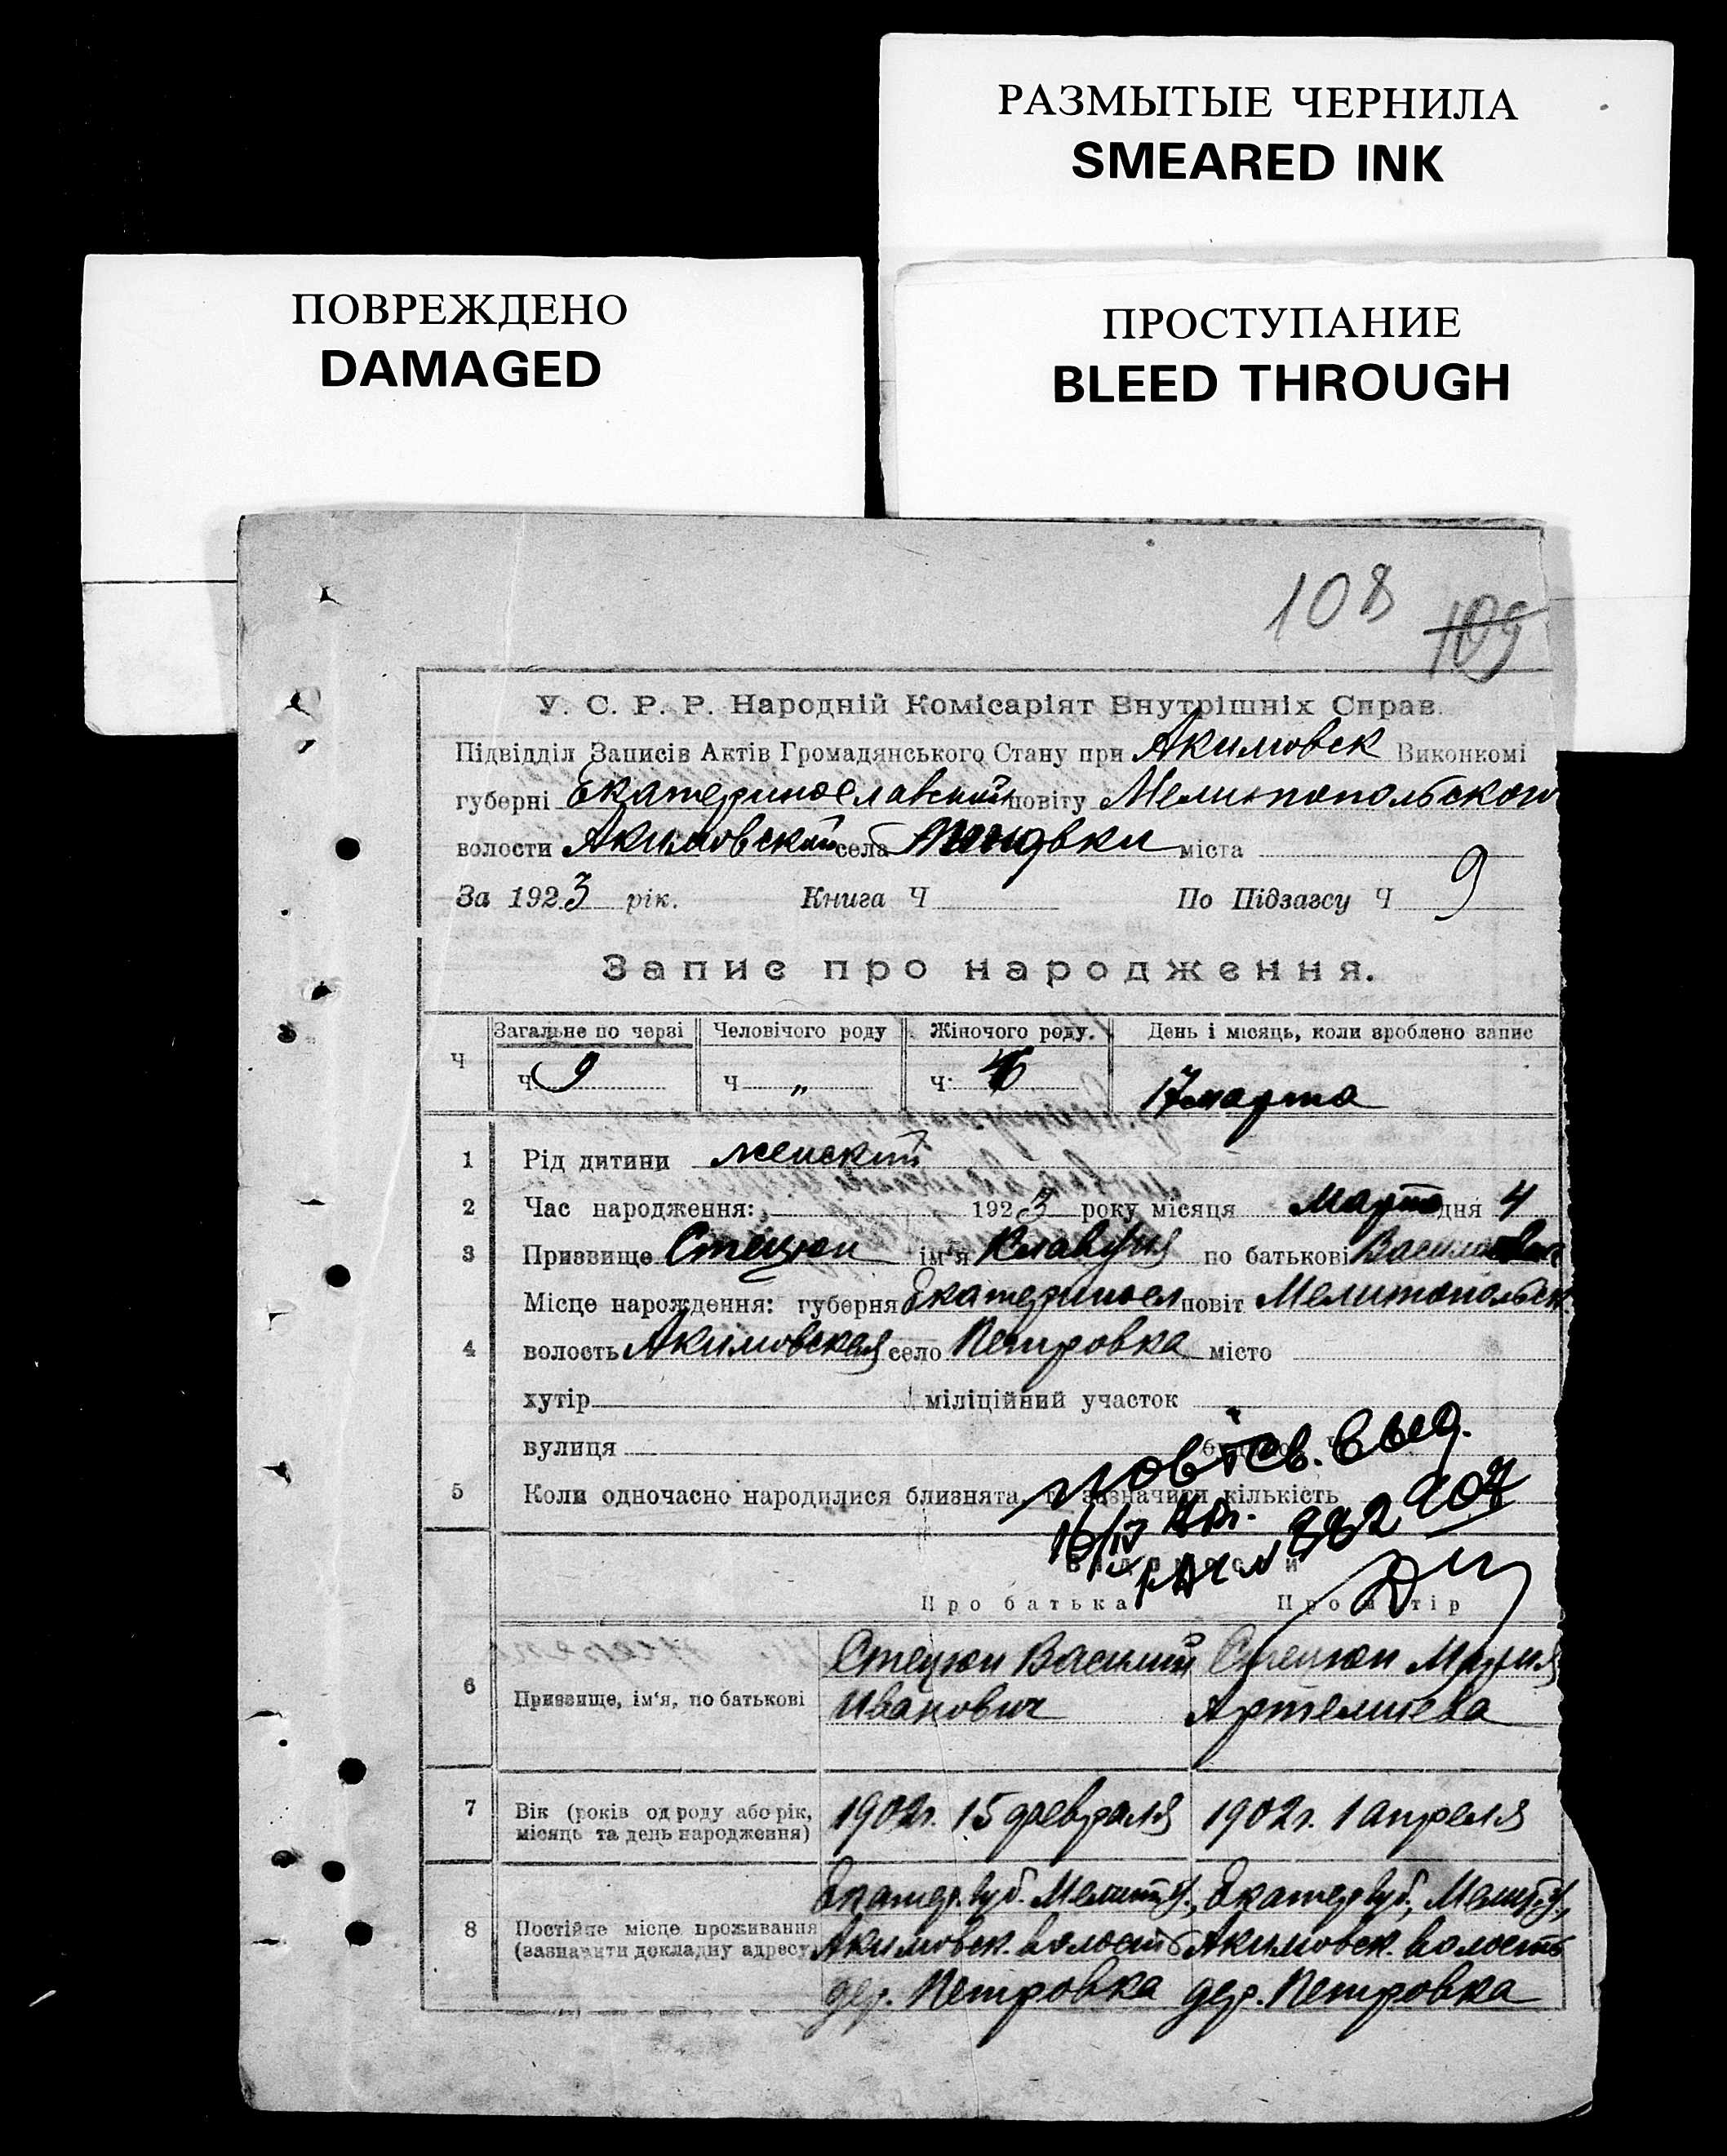 РАЗМЫТЫЕ ЧЕРНИЛА
SMEARED INK
ПОВРЕЖДЕНО
DAMAGED
ПРОСТУПАНИЕ
BLEED THROUGH
108 109
У. С. Р. Р. Народній Комісаріят Внутрішніх Справ.
Підвідділ Записів Актів Громадянського Стану при Акимовск Виконкомі
губерні Екатеринославской повіту Мелитопольского
волости Акимовской села міста
За 1923 рік. Книга Ч По Підзагсу Ч 9
Запис про народження.
Ч Загальне по черзі Человічого роду Жіночого роду. День і місяць, коли зроблено запис
Ч 9 Ч „ Ч 17 марта
1 Рід дитини женский
2 Час народження: 1923 року місяця Марта дня 4
3 Призвище Стецюн ім'я Клавдия по батькові
Місце нарождення: губерня Екатеринosл повіт Мелитопольск.
4 волость Акимовская село Петровка місто
хутір міліційний участок
вулиця
5 Коли одночасно народилися близнята, то зазначити кількість
повт св. выд.
16/IV
Про батька Про матір
6 Призвище, ім'я, по батькові Стецюн Василий Стецюн Мария
Иванович Артемиева
7 Вік (років од роду або рік, місяць та день народження) 1902г. 15 февраля 1902г. 1 апреля
8 Постійне місце проживання (зазначити докладну адресу) Екатер. губ. Мелит. у., Екатер. губ., Мелит. у.,
Акимовск. волость Акимовск. волость
дер. Петровка дер. Петровка